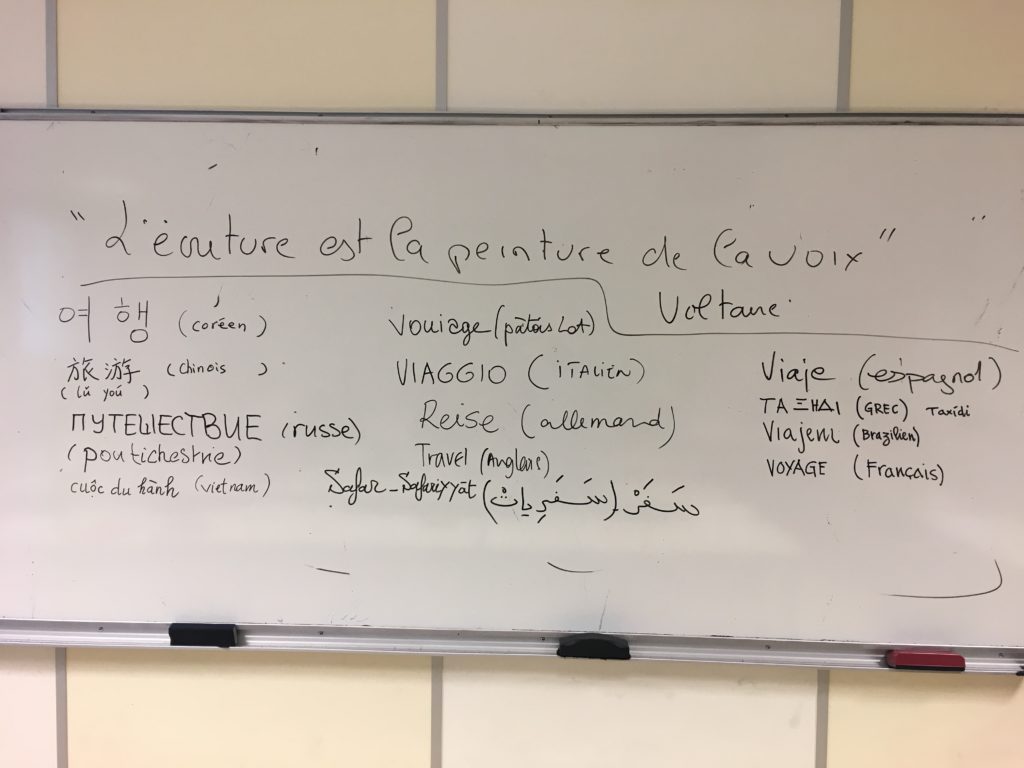 "L'écriture est la peinture de la voix"
Voltaire
여행 (coréen)
旅游 (chinois)
(lǚ yoú)
ПУТЕШЕСТВИЕ (russe)
(poutichestvie)
cuôc du hành (vietnam)
Vouiage (patois Lot)
VIAGGIO (ITALIEN)
Reise (allemand)
Travel (Anglais)
Safar - Safariyyāt (سَفَرِيات) سَفَرْ
Viaje (espagnol)
ΤΑΞΗΔΙ (GREC) Taxídi
Viajem (Brazilien)
VOYAGE (Français)